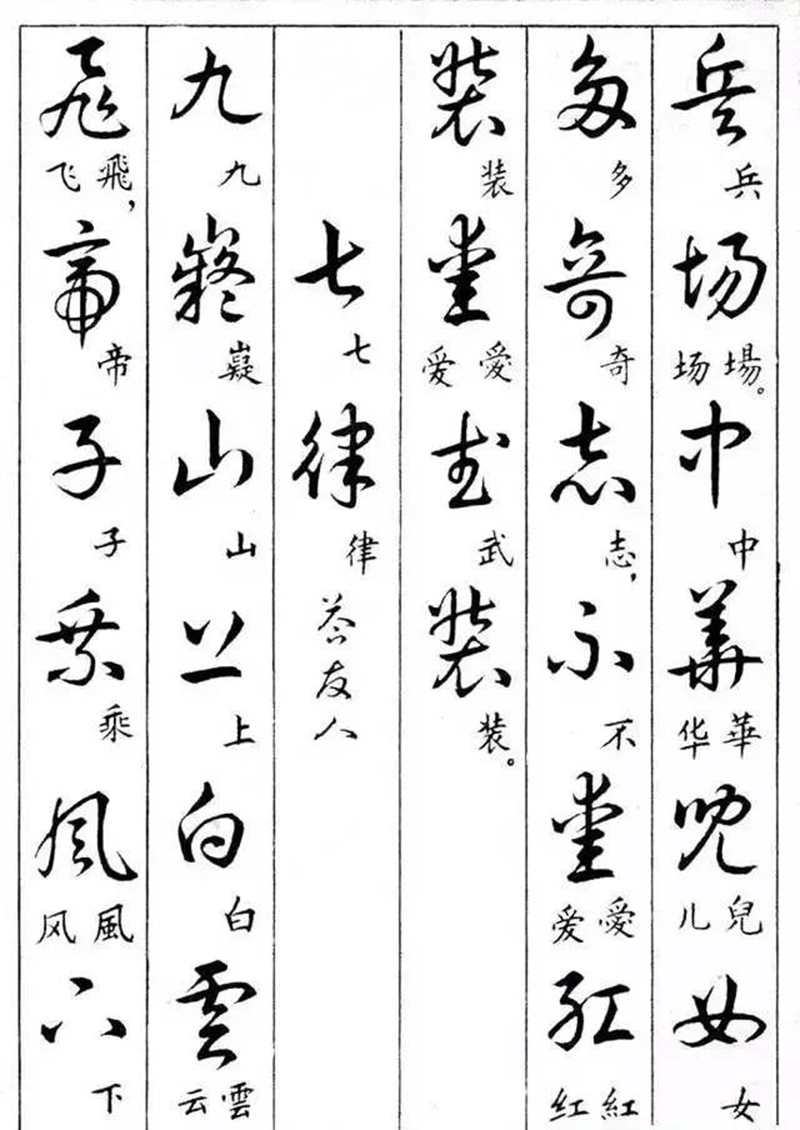 兵場中華兒女
兵場。场中華华兒儿女
多奇志不愛紅
多奇志,不愛爱紅红
装愛武装
装愛爱武装。
七律
七律答友人
九嶷山上白雲
九嶷山上白雲云
飛帝子乘風下
飛,飞帝子乘風风下